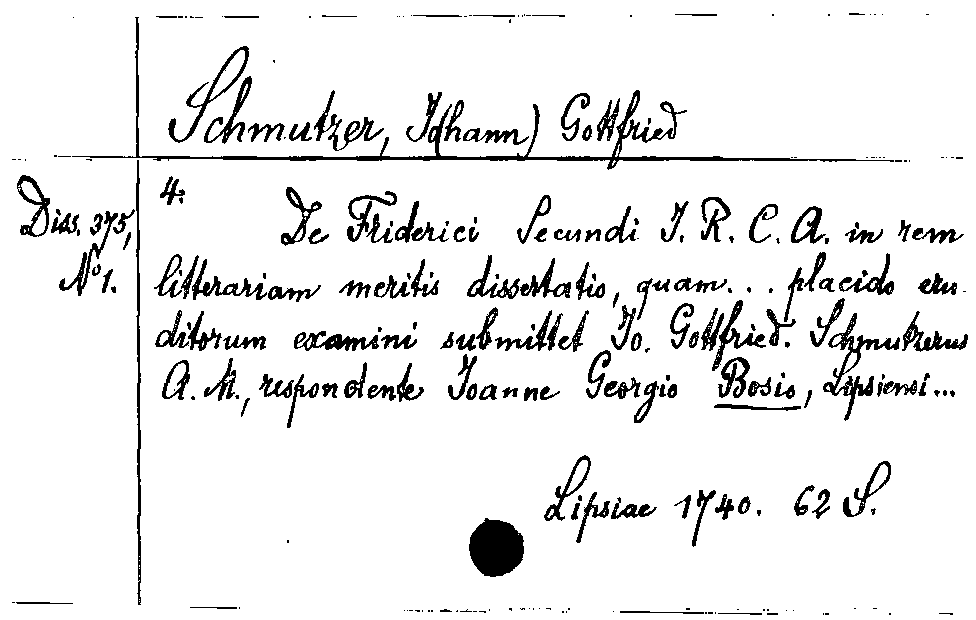 Schmutzer, Jo(hann) Gottfried
Diss. 375,
No 1.
4:
De Friderici Secundi I. R. C. A. in rem
litterariam meritis dissertatio, quam... placido eru-
ditorum examini submittet Jo. Gottfried. Schmutzerus
A. M., respondente Joanne Georgio Bosio, Lipsiensi...
Lipsiae 1740. 62 S.